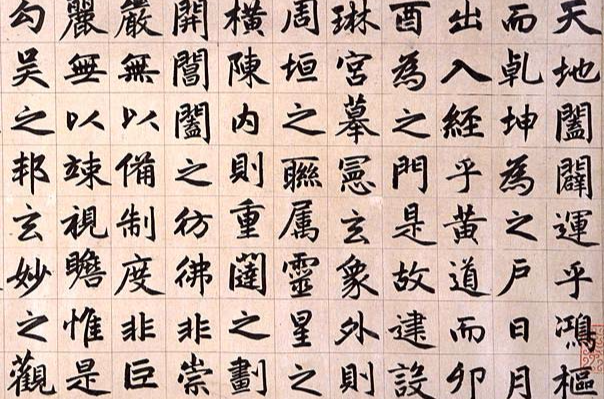 天地闔闢運乎鴻樞
而乹坤為之戶日月
出入經乎黃道而卯
酉為之門是故建設
琳宮摹憲玄象外則
周垣之聯属靈星之
橫陳内則重闥之劃
開閶闔之彷彿非崇
嚴無以備制度非巨
麗無以竦視瞻惟是
勾吳之邦玄妙之觀